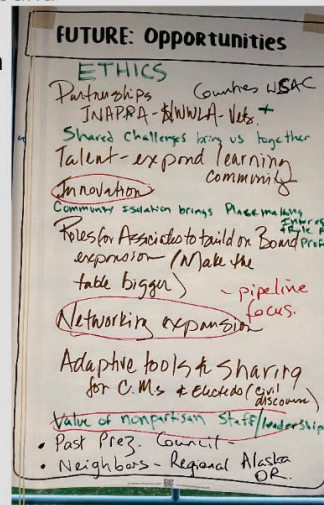 FUTURE: Opportunities
ETHICS
Partnerships Counties WSAC
JNAPRA - NWWLA - Vets. +
Shared challenges bring us together
Talent - expand learning
community
Innovation
Community issolation brings Placemaking
Roles for Associates to build on Board
expansion (Make the
table bigger)
- pipeline
focus.
Networking expansion
Adaptive tools & sharing
for C.Ms & Electeds (civil
discourse)
Value of nonpartisan Staff/leadership
• Past Prez. Council -
• Neighbors - Regional Alaska
OR.